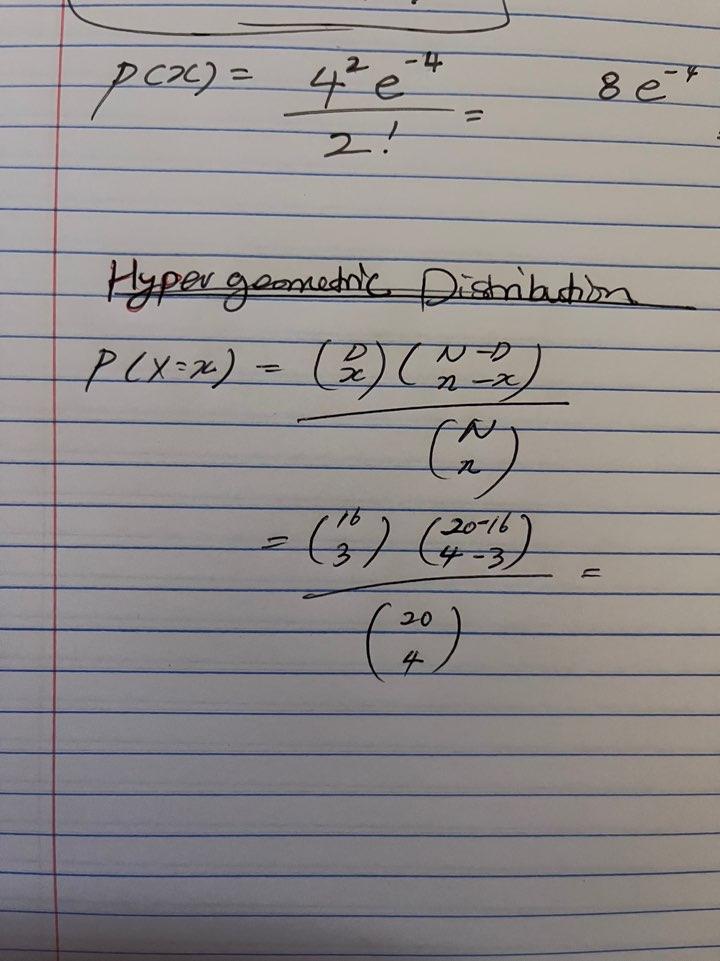 p(x) = 4² e⁻⁴ / 2! = 8 e⁻⁴
Hypergeometric Distribution
P(X=x) = (D x) (N-D n-x) / (N n)
= (16 3) (20-16 4-3) / (20 4) =